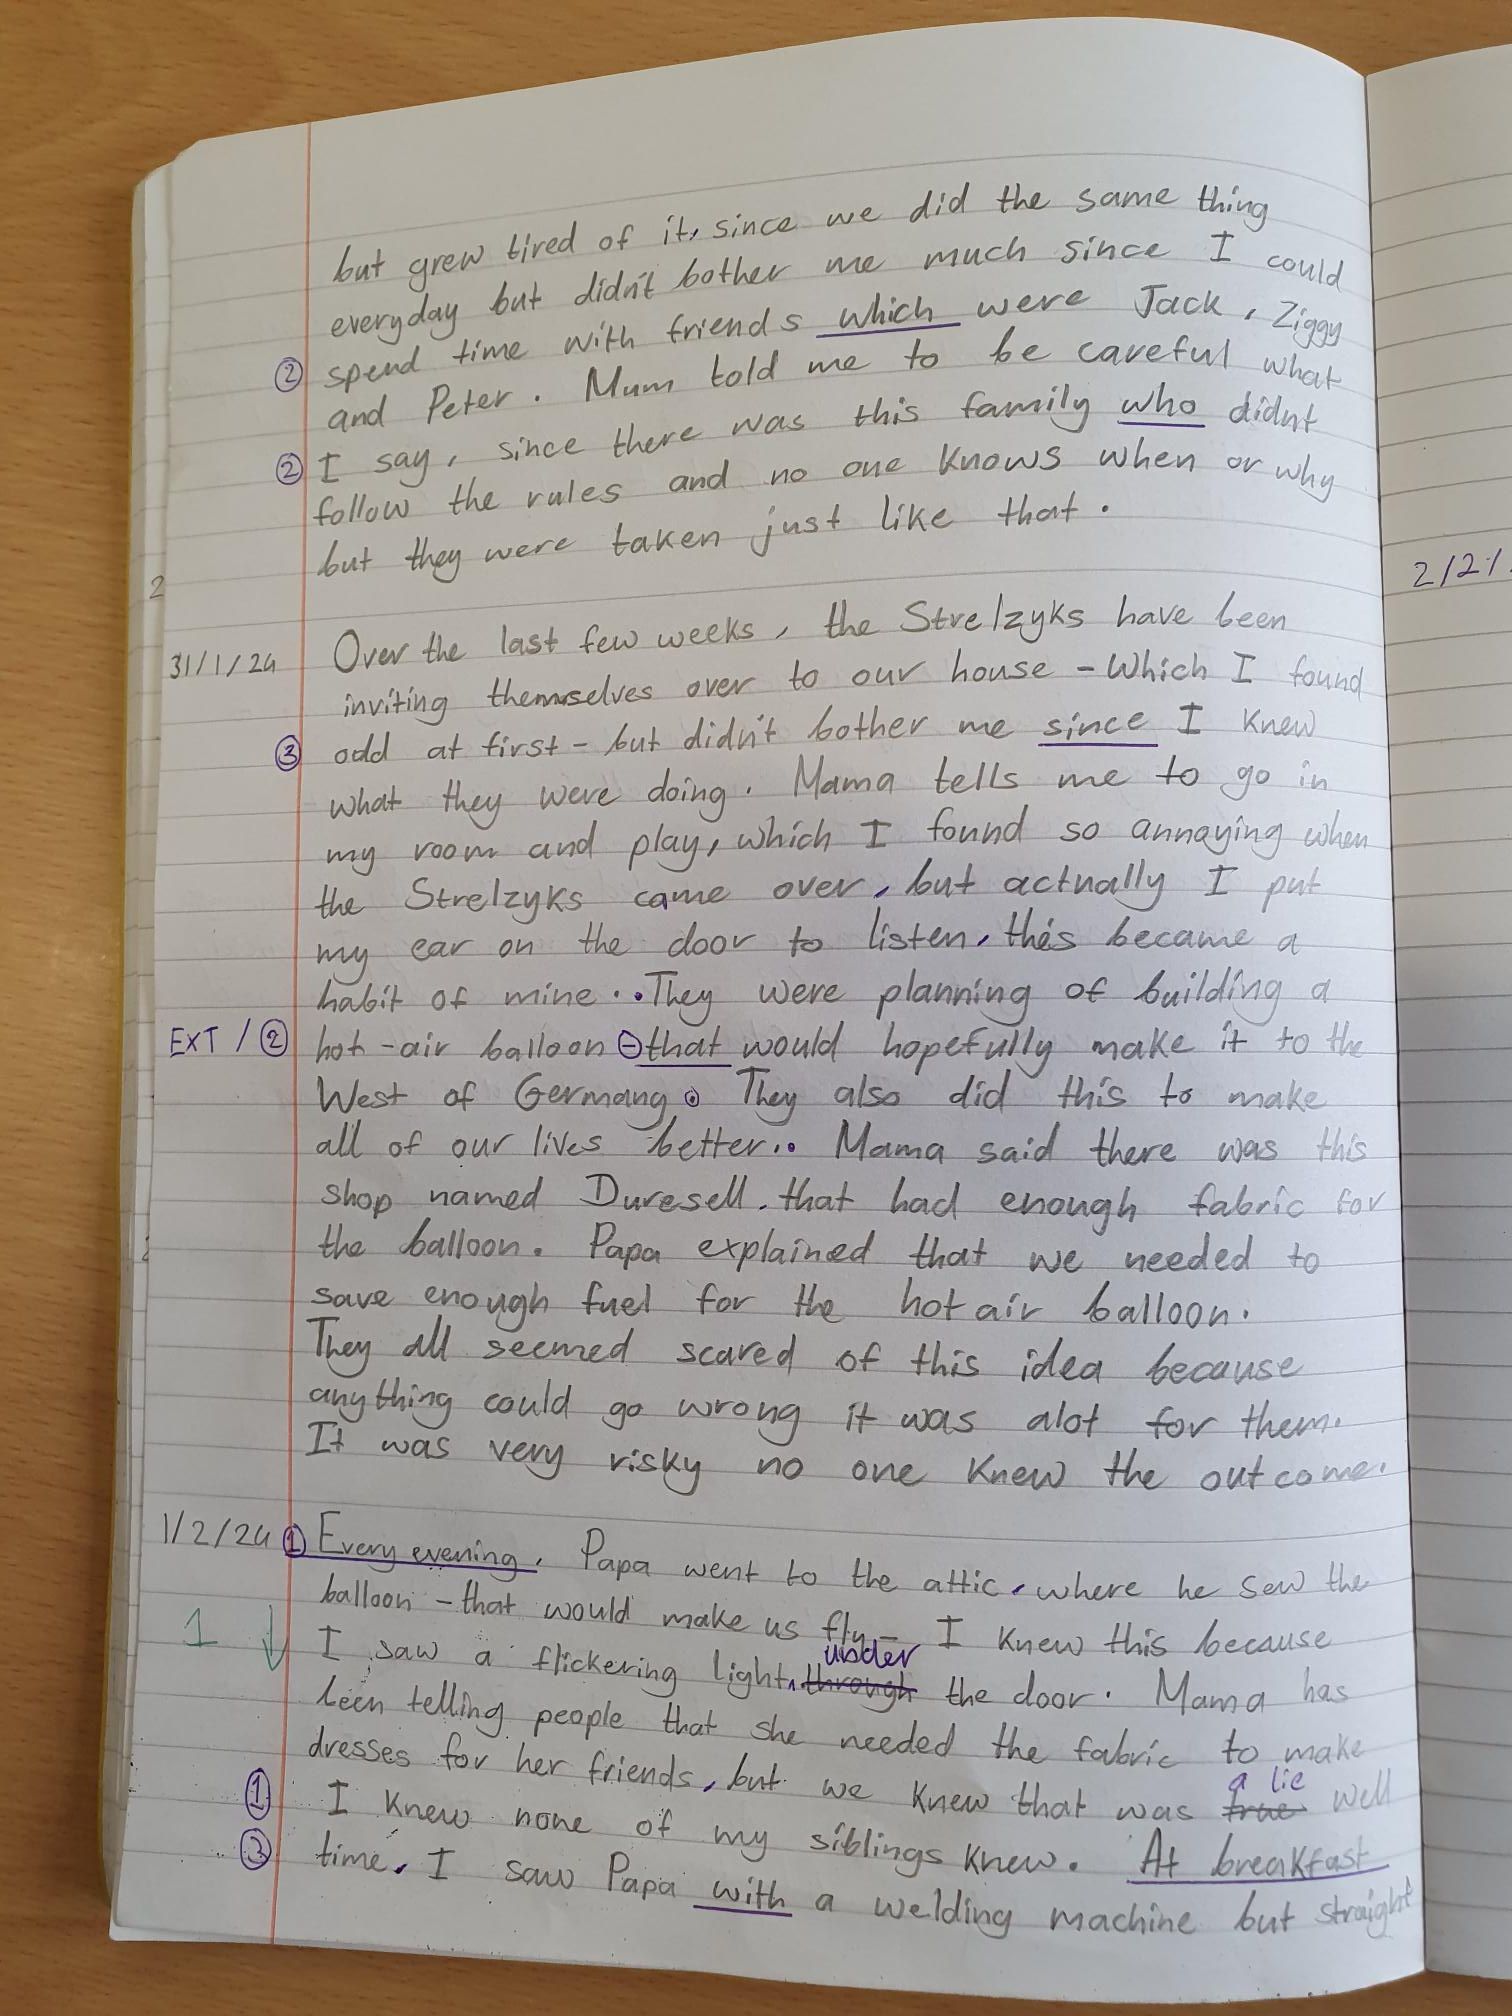 but grew tired of it, since we did the same thing
everyday but didn't bother me much since I could
② spend time with friends which were Jack, Ziggy
and Peter. Mum told me to be careful what
② I say, since there was this family who didnt
follow the rules and no one knows when or why
but they were taken just like that.
2
2/2/
31/1/24 Over the last few weeks, the Strelzyks have been
inviting themselves over to our house - Which I found
③ odd at first - but didn't bother me since I knew
what they were doing. Mama tells me to go in
my room and play, which I found so annoying when
the Strelzyks came over, but actually I put
my ear on the door to listen, this became a
habit of mine.. They were planning of building a
EXT / ② hot-air balloon - that would hopefully make it to the
West of Germany. They also did this to make
all of our lives better.. Mama said there was this
shop named Duresell, that had enough fabric for
the balloon. Papa explained that we needed to
save enough fuel for the hot air balloon.
They all seemed scared of this idea because
anything could go wrong it was alot for them.
It was very risky no one knew the outcome.
1/2/24 ① Every evening, Papa went to the attic, where he sew the
balloon - that would make us fly - I knew this because
1 ↓ I saw a flickering light, through under the door. Mama has
been telling people that she needed the fabric to make
dresses for her friends, but we knew that was true a lie well
① I knew none of my siblings knew. At breakfast
③ time, I saw Papa with a welding machine but straight